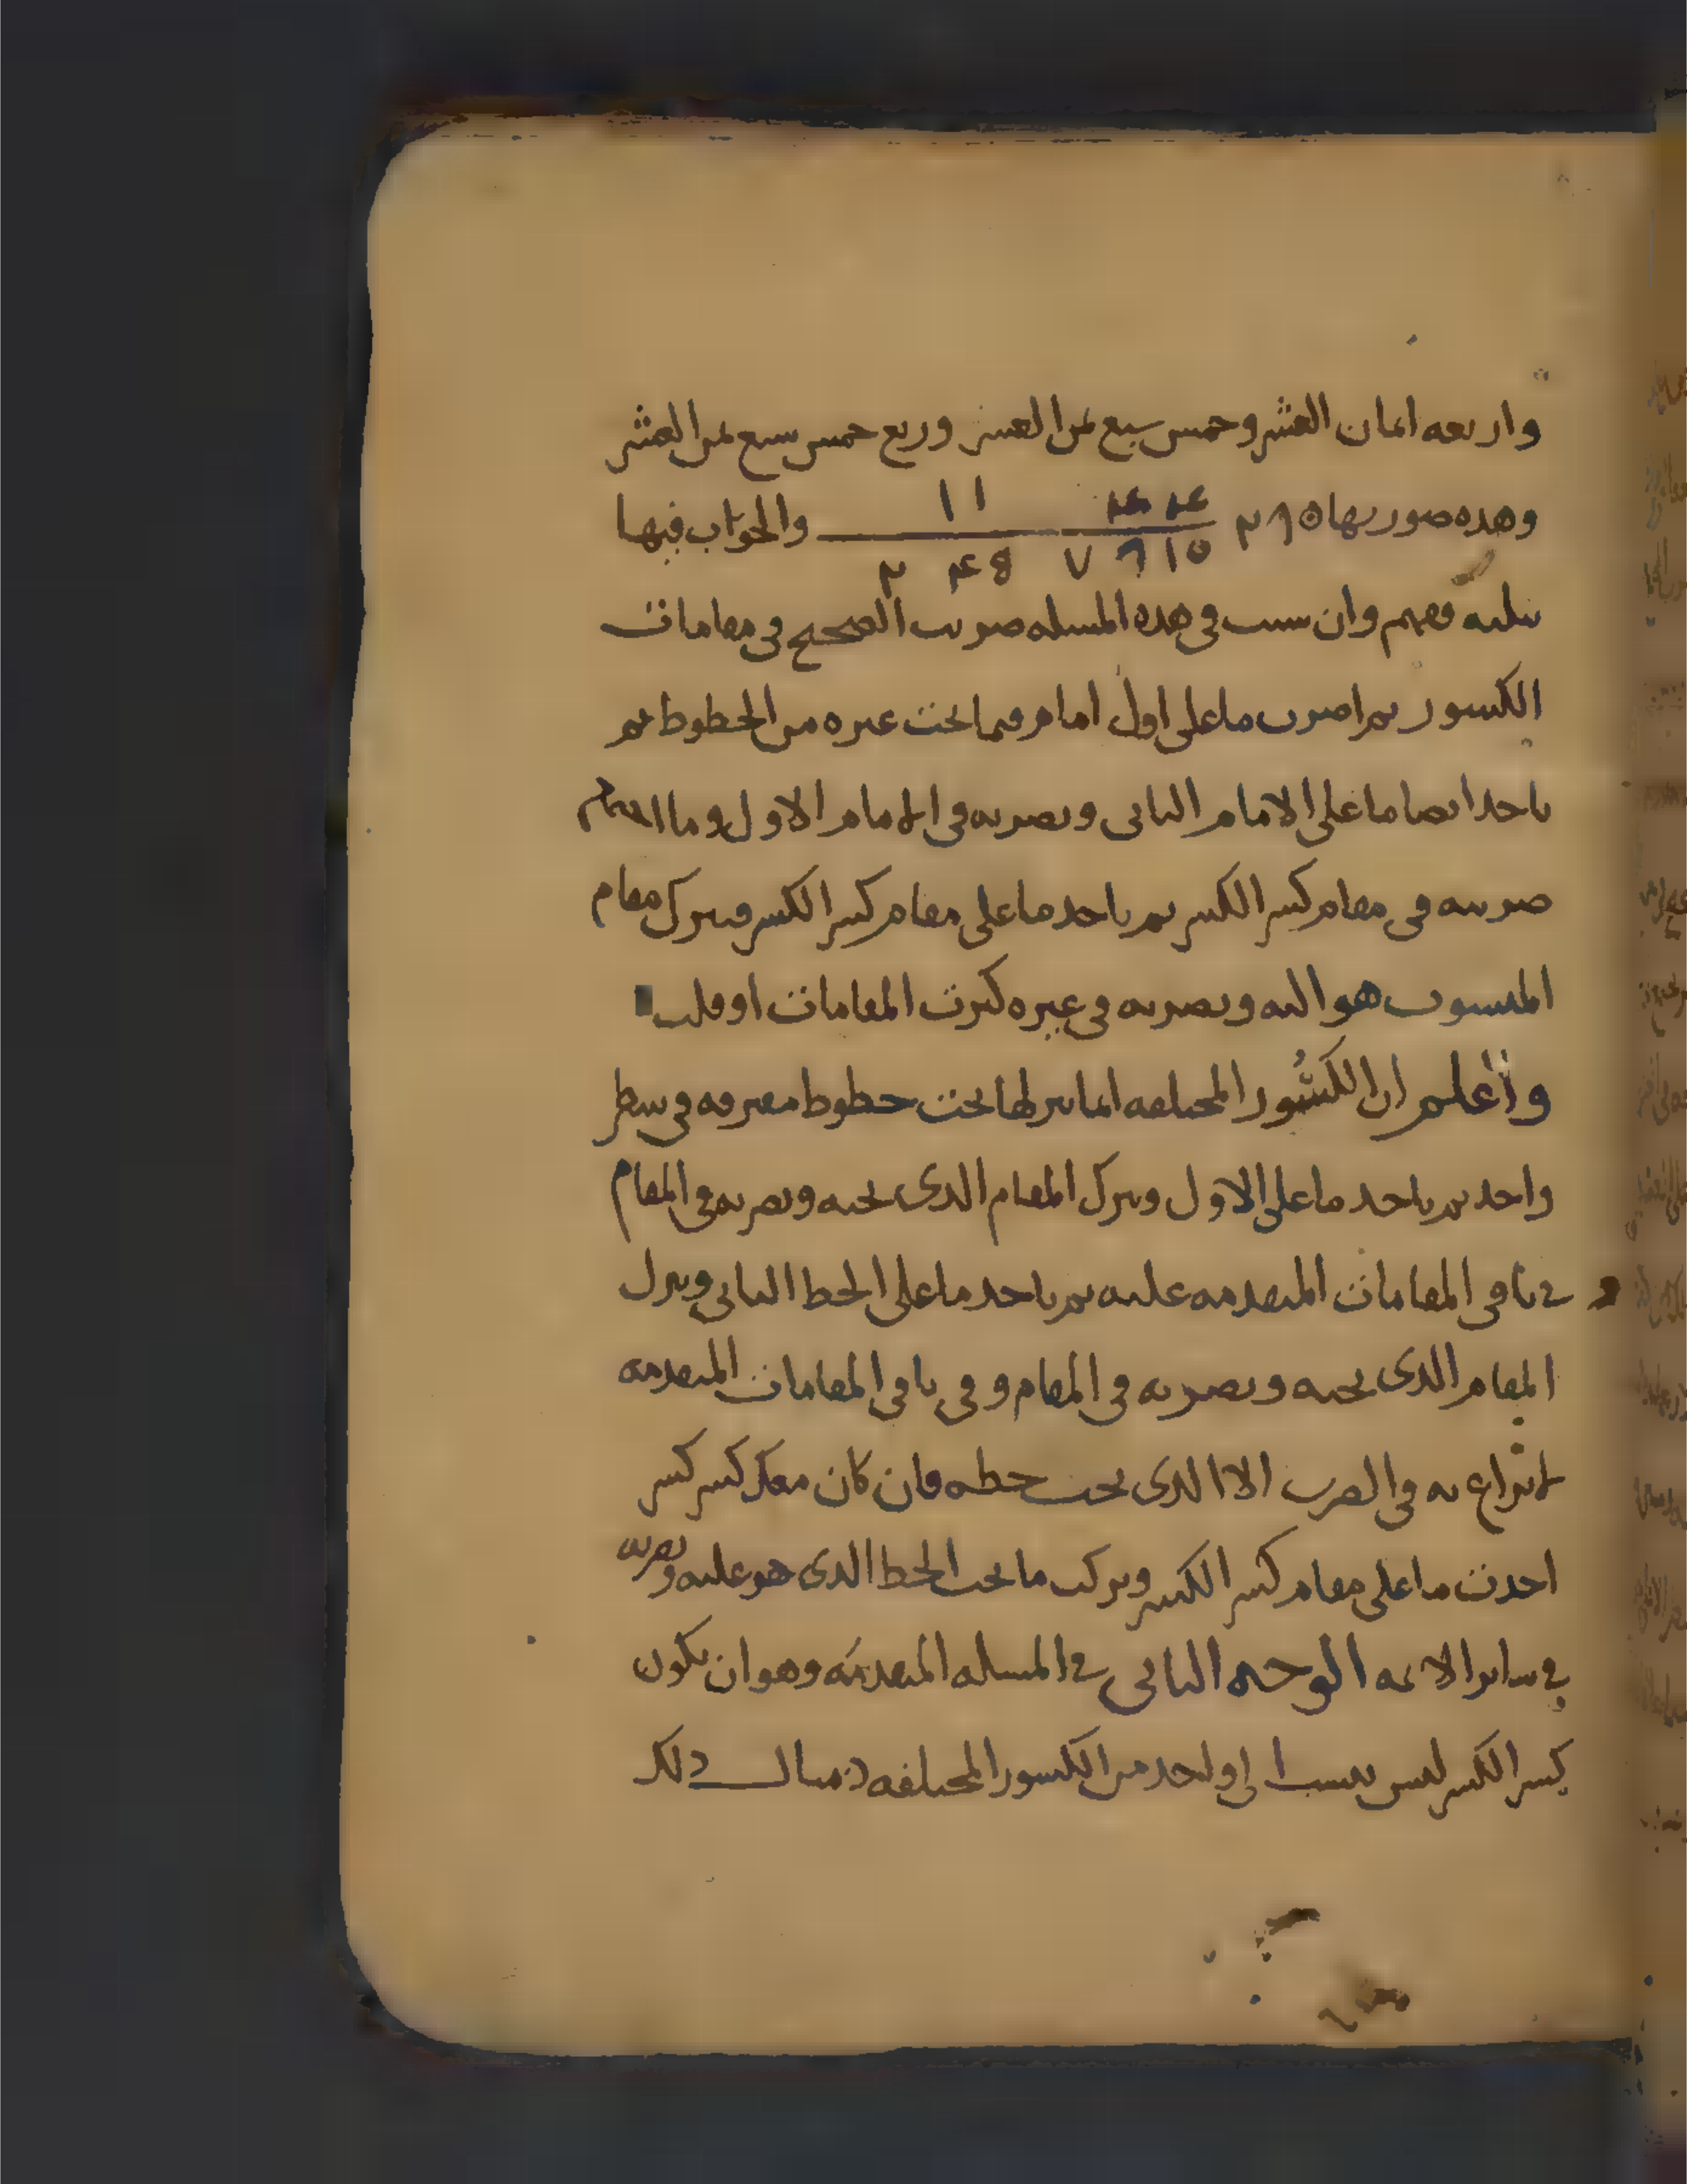 واربعه اثمان العشر وخمس سبع ثمن العشر وربع خمس سبع ثمن العشر
وهذه صورتها والجواب فيها
١١
فيها فافهم وان شئت في هذه المسله ضربت الصحيح في مقامات
الكسور ثم اضرب ما على اول امام فيما تحت غيره من الخطوط ثم
ياخذ ايضا ما على الامام الثاني ويضربه في الامام الاول وما
ضربته في مقام كسر الكسر ثم ياخذ ما على مقام كسر الكسر فيترك مقام
المنسوب هو اليه ويضربه في غيره كثرت المقامات او قلت
واعلم ان الكسور المختلفه انما ينزلها تحت خطوط مفترقه في سطر
واحد ثم ياخذ ما على الاول ويترك المقام الذي تحته ويضربه في المقام
في باقي المقامات المتقدمه عليه ثم ياخذ ما على الخط الثاني ويترك
المقام الذي تحته ويضربه في المقام وفي باقي المقامات المتقدمه
لا يراع به في الضرب الا الذي تحت خطه فان كان معك كسر كسر
اخذت ما على مقام كسر الكسر وتركت ما تحت الخط الذي هو عليه وتضربه
في ساير الايمه الوجه الثاني في المسله المتقدمه وهو ان يكون
كسر الكسر ليس ينسب الى واحد من الكسور المختلفه مثال ذلك